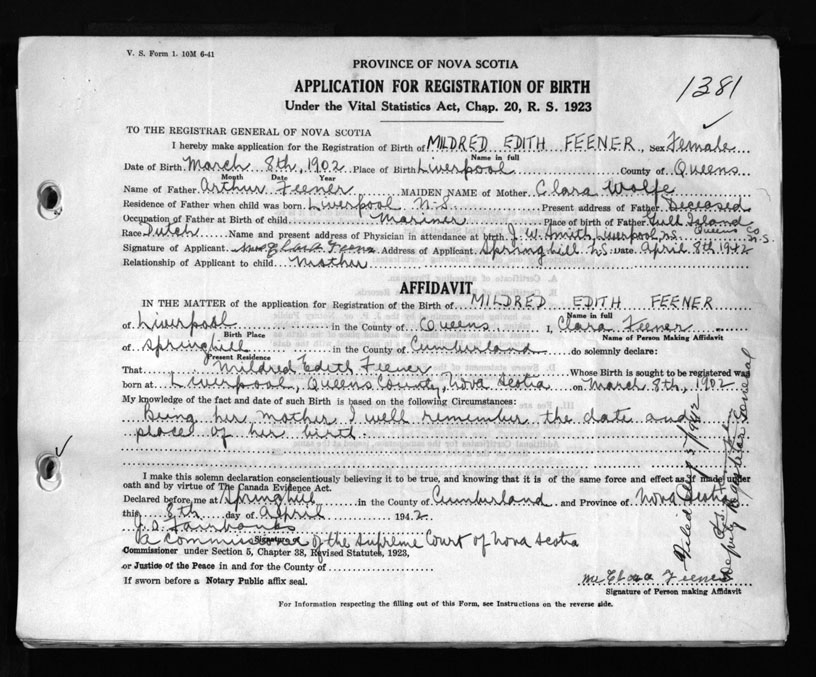 V. S. Form 1. 10M 6-41
PROVINCE OF NOVA SCOTIA
1381
APPLICATION FOR REGISTRATION OF BIRTH
Under the Vital Statistics Act, Chap. 20, R. S. 1923
TO THE REGISTRAR GENERAL OF NOVA SCOTIA
I hereby make application for the Registration of Birth of MILDRED EDITH FEENER, Sex Female
Name in full
Date of Birth March 8th, 1902 Place of Birth Liverpool County of Queens
Month Date Year
Name of Father Arthur Feener MAIDEN NAME of Mother Clara Wolfe
Residence of Father when child was born Liverpool N.S. Present address of Father Deceased
Occupation of Father at Birth of child Mariner Place of birth of Father Gull Island
Queens Co. N.S.
Race Dutch Name and present address of Physician in attendance at birth J. W. Smith, Liverpool, N.S.
Signature of Applicant Mrs Clara Feener Address of Applicant Springhill N.S. Date April 8th 1942
Relationship of Applicant to child Mother
AFFIDAVIT
IN THE MATTER of the application for Registration of the Birth of MILDRED EDITH FEENER
Name in full
of Liverpool in the County of Queens I, Clara Feener
Birth Place Name of Person Making Affidavit
of Springhill in the County of Cumberland do solemnly declare:
Present Residence
That Mildred Edith Feener Whose Birth is sought to be registered was
born at Liverpool, Queens County, Nova Scotia on March 8th, 1902
My knowledge of the fact and date of such Birth is based on the following Circumstances:
Being her mother I well remember the date and
place of her birth
I make this solemn declaration conscientiously believing it to be true, and knowing that it is of the same force and effect as if made under
oath and by virtue of The Canada Evidence Act.
Declared before me at Springhill in the County of Cumberland and Province of Nova Scotia
this 8th day of April 1942
J. D. Fairbanks
Signature
A Commissioner of the Supreme Court of Nova Scotia
Commissioner under Section 5, Chapter 38, Revised Statutes, 1923,
or Justice of the Peace in and for the County of
If sworn before a Notary Public affix seal.
Mrs Clara Feener
Signature of Person making Affidavit
For Information respecting the filling out of this Form, see Instructions on the reverse side.
Deputy Registrar General